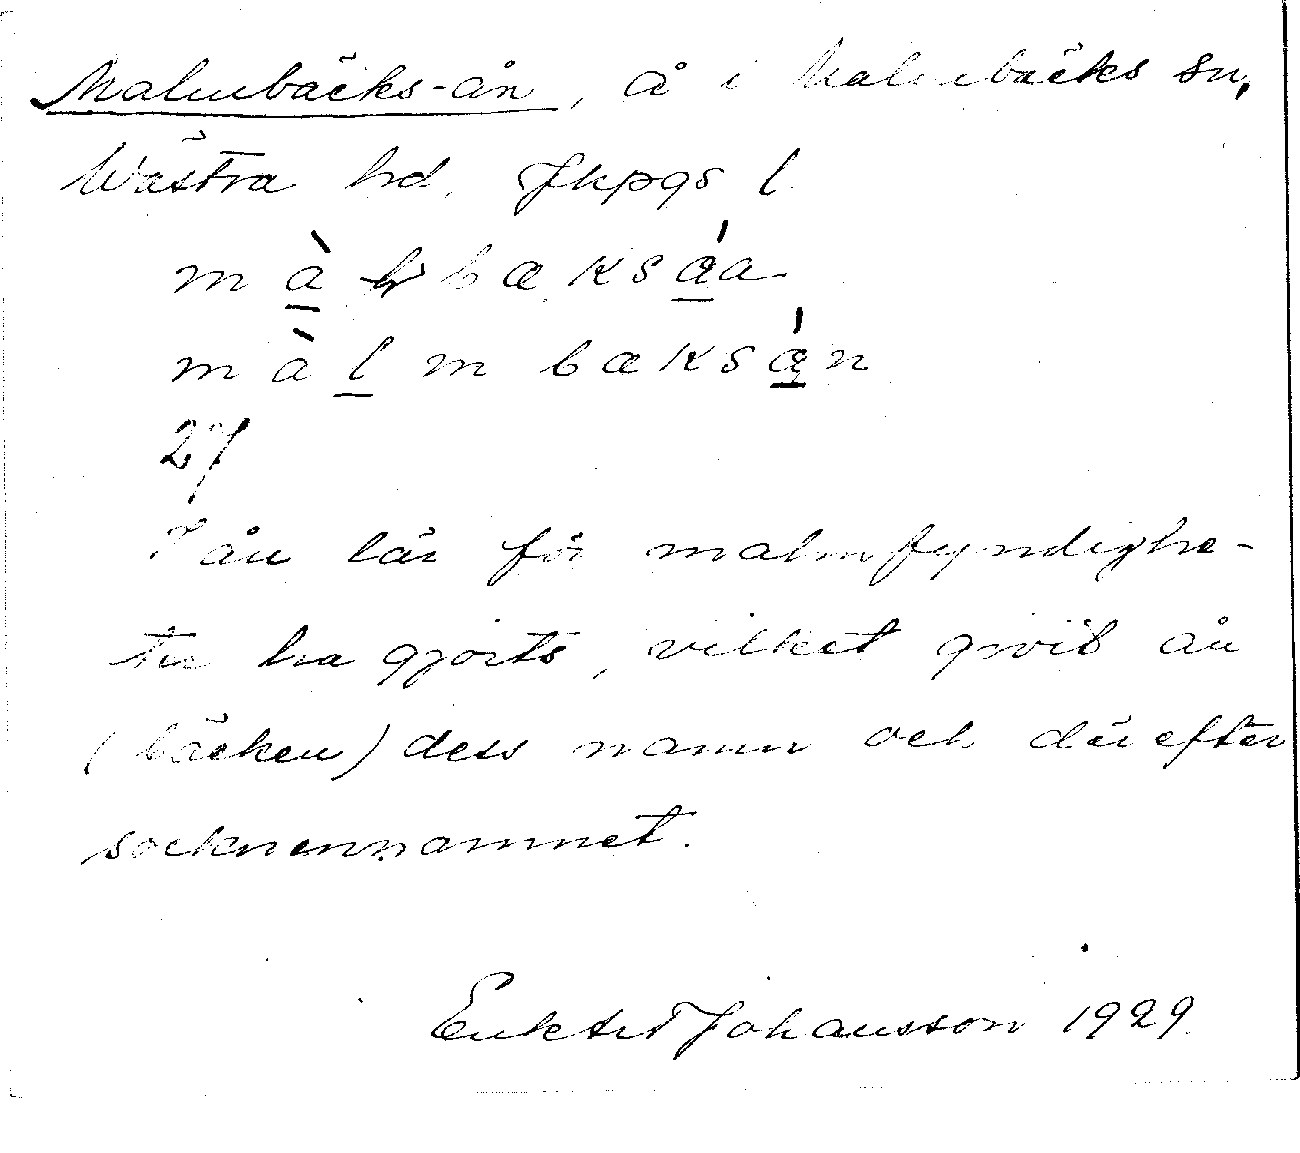 Malmbäcks-ån, å i Malmbäcks sn,
Wästra hd. Jkpgs l.
mà bæksáa
màlm bæksán
27
I ån lär för malmfyndighe-
ter ha gjorts, vilket givit ån
(bäcken) dess namn och därefter
socknennamnet.
Johansson 1929.